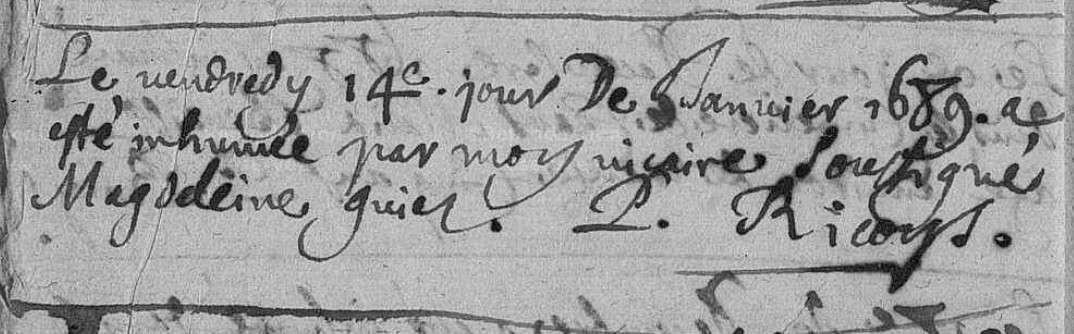 Le vendredy 14e. jour De Januier 1689. a
esté inhumée par moy vicaire soussigné
Magdeleine guiez. P. Ricoys.